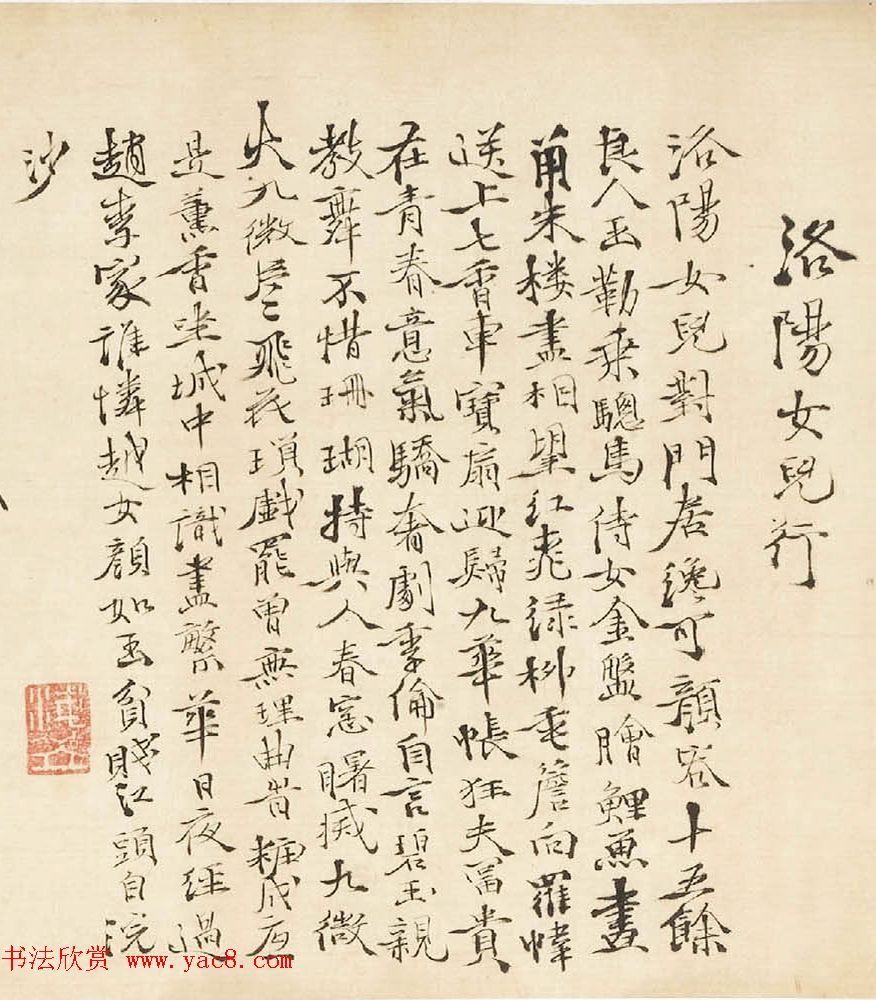 洛陽女兒行
洛陽女兒對門居纔可顏容十五餘
良人玉勒乘驄馬侍女金盤膾鯉魚畫
閣朱楼盡相望紅桃綠柳垂簷向羅幃
送上七香車寶扇迎歸九華帳狂夫富貴
在青春意氣驕奢劇季倫自言碧玉親
教舞不惜珊瑚持與人春窗曙滅九微
火九微片片飛花瑣戲罷曾無理曲時糚成祇
是薰香坐城中相識盡繁華日夜經過
趙李家誰憐越女顏如玉貧賤江頭自浣
沙
书法欣赏 www.yac8.com